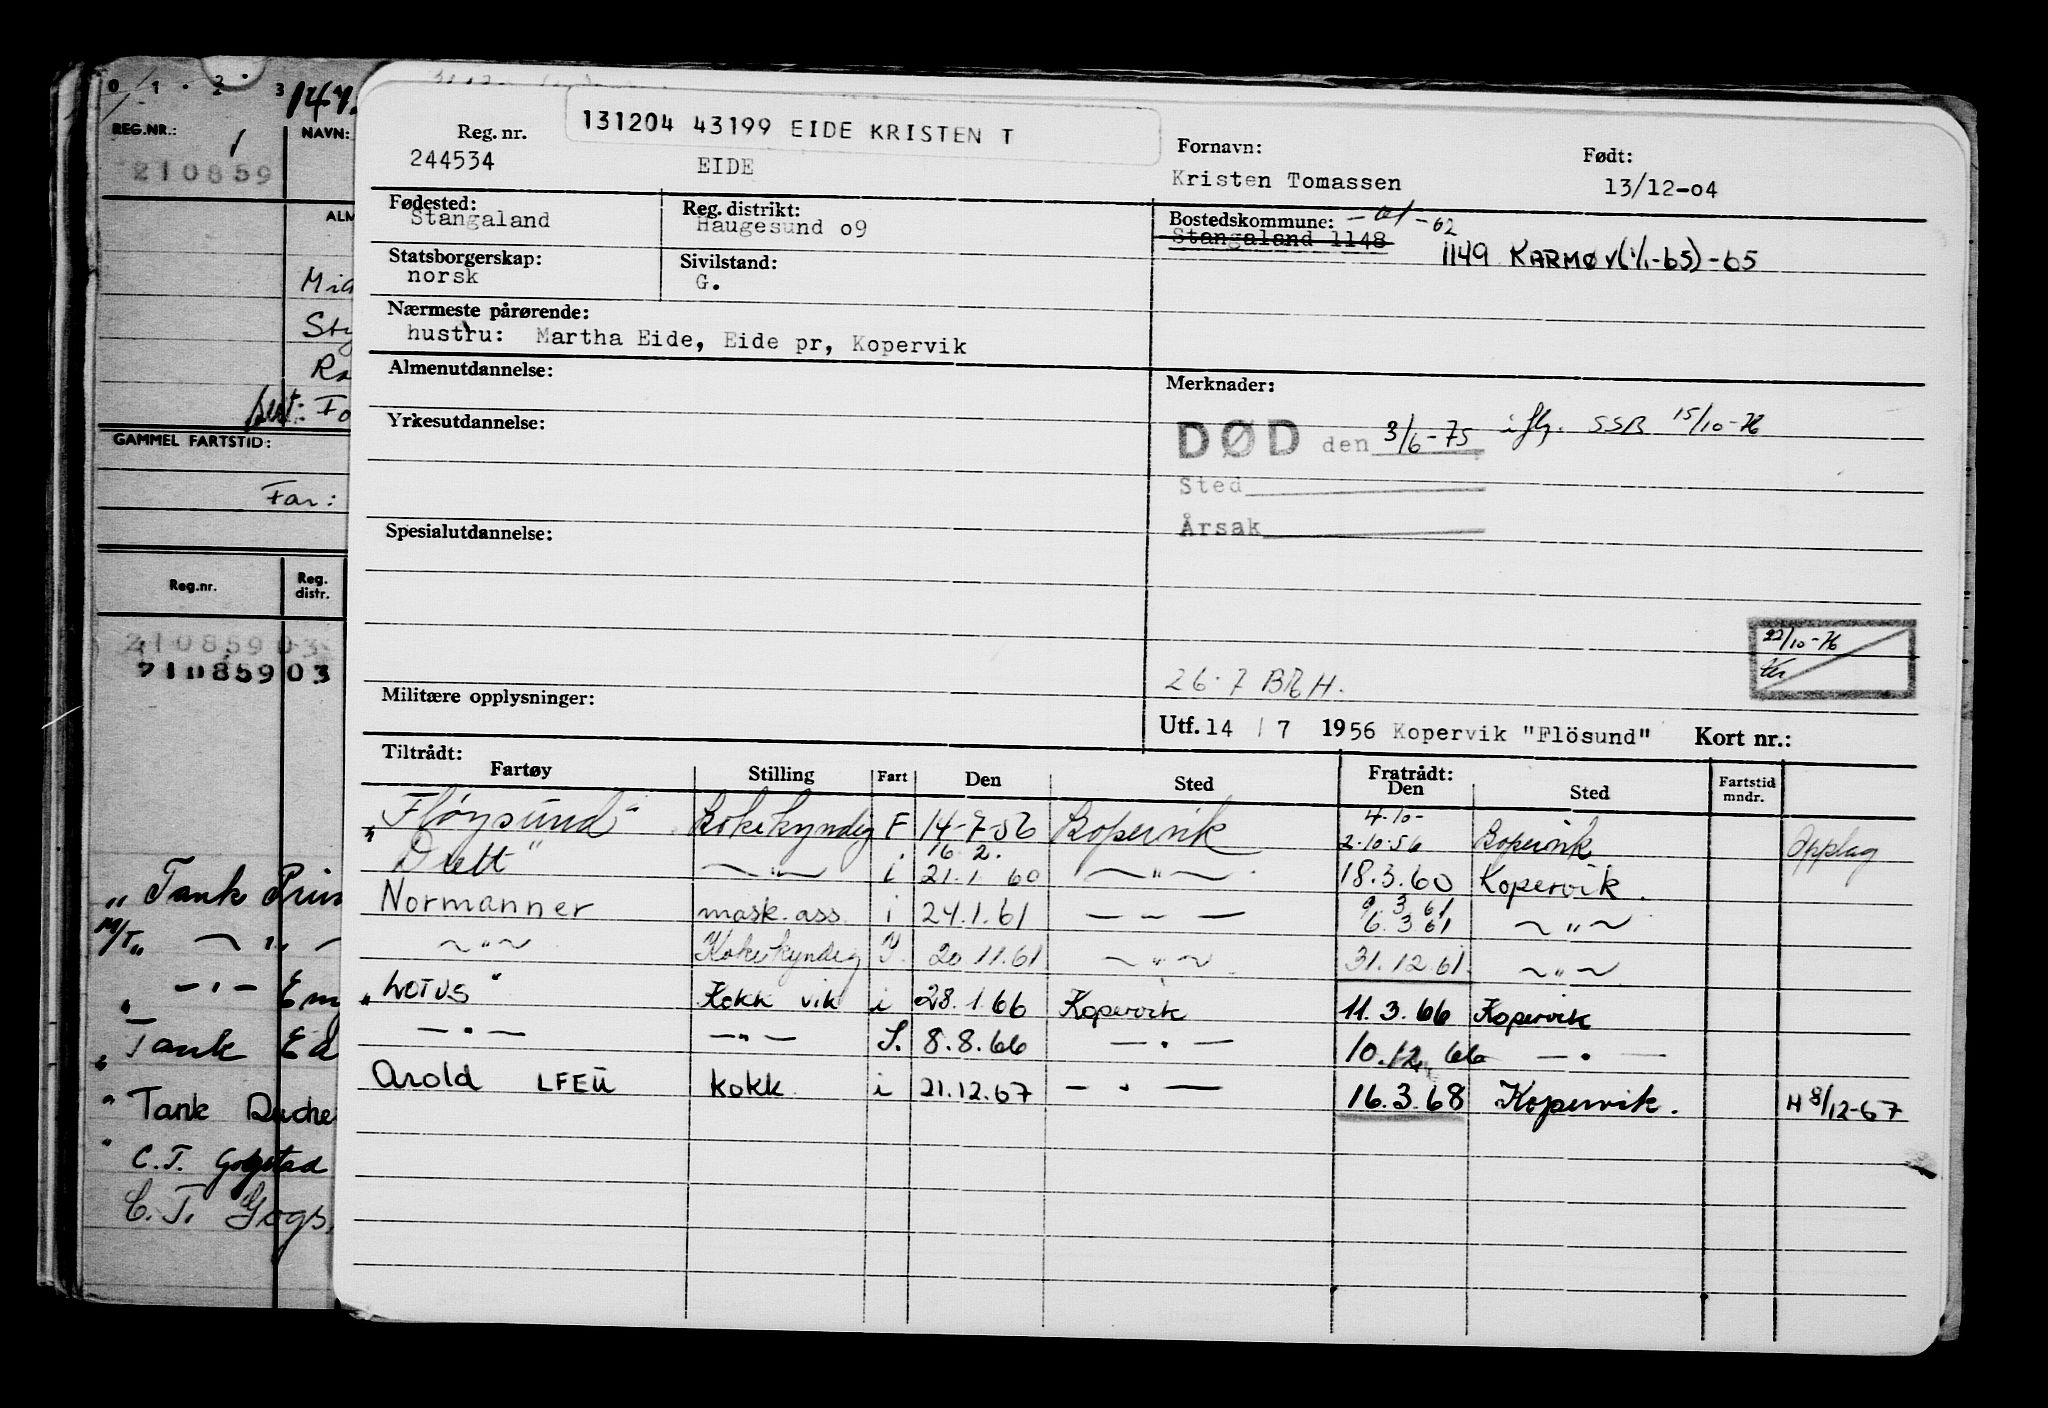 0 1 2 3 147.
REG.NR.: 1 NAVN:
210859
ALM
Mid
Sty
Ra
best: Fo
GAMMEL FARTSTID:
Far:
Reg.nr. Reg. distr.
210859 03
210859 03
„ Tank Prin
M/T„ — „ —
„ — " — Em
„ Tank Ed
" Tank Duche
" C.T. Gogstad
C.T. Gogs
131204 43199 EIDE KRISTEN T
Reg. nr.
244534 EIDE
Fornavn: Født:
Kristen Tomassen 13/12-04
Fødested: Reg. distrikt: Bostedskommune: -61-62
Stangaland Haugesund o9 Stangaland 1148
1149 KARMØY(1/1-65)-65
Statsborgerskap: Sivilstand:
norsk G.
Nærmeste pårørende:
hustru: Martha Eide, Eide pr, Kopervik
Almenutdannelse: Merknader:
Yrkesutdannelse:
DØD den 3/6-75 iflg. SSB 15/10-76
Sted
Årsak
Spesialutdannelse:
22/10-76
26.7 BRH.
Militære opplysninger:
Utf. 14 / 7 1956 Kopervik "Flösund" Kort nr.:
Tiltrådt: Fratrådt:
Fartøy Stilling Fart Den Sted Den Sted Fartstid mndr.
„Fløysund" Kokekyndig F 14-7-56 Kopervik 4-10- 2.10.56 Kopervik Opplag
Drett" — " — i 16 2. 21.1 60 — " — 18.3.60 Kopervik.
Normanner mask. ass. i 24.1.61 — " — 9.3.61 6.3 61 — " —
— " — Kokekyndig 20.11.61 — " — 31.12.61. — " —
„LOTUS" Kokk vik i 28.1.66 Kopervik 11.3.66 Kopervik
— " — — " — S. 8.8.66 — " — 10.12.66 — " —
Arold LFEU kokk i 21.12.67 — " — 16.3.68 Kopervik. H 8/12-67